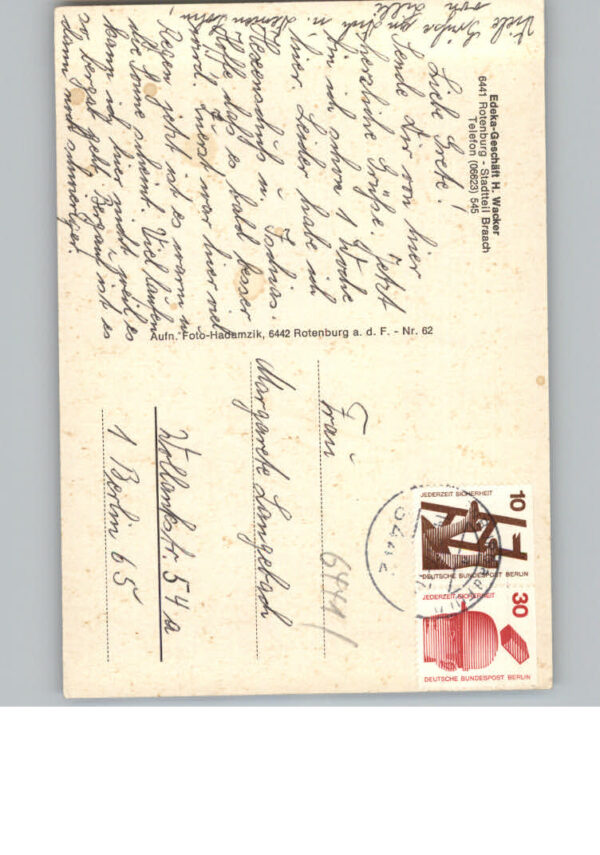 Edeka-Geschäft H. Wacker
6441 Rotenburg - Stadtteil Braach
Telefon (06623) 545
Liebe Grete!
Sende Dir von hier
herzliche Grüße. Jetzt
bin ich schon 1 Woche
hier. Leider habe ich
Hexenschuß u. Ischias.
Hoffe daß es bald besser
wird. Zuerst war hier viel
Regen jetzt ist es warm u.
die Sonne scheint. Viel laufen
kann ich hier nicht, weil es
so bergab geht. Bergauf ist es
dann noch schwieriger.
Viele Grüße an Dich u. Deinen Sohn,
von Lilli
Aufn. Foto-Hadamzik, 6442 Rotenburg a. d. F. - Nr. 62
Frau
Margarete Langebach
Wollankstr. 54a
1 Berlin 65
6441
JEDERZEIT SICHERHEIT
10
DEUTSCHE BUNDESPOST BERLIN
JEDERZEIT SICHERHEIT
30
DEUTSCHE BUNDESPOST BERLIN